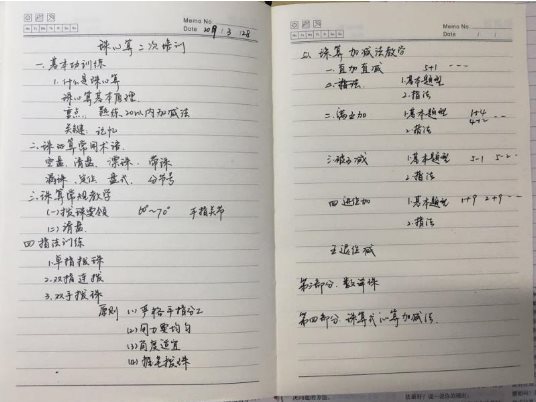 Memo No.
Date 2021.3.28
珠心算二次培训
一.基本功训练
1.什么是珠心算
珠心算基本原理.
重点. 熟练20以内加减法
关键. 记忆
二.珠心算常用术语.
空盘.清盘.漂珠.带珠
满珠.定位.盘式.分节号
三.珠算常规教学
(一)拨珠要领 60°~70° 手指关节
(二)清盘.
四.指法训练
1.单指拨珠
2.双指连拨
3.双手拨珠
原则 (1)严格手指分工
(2)用力要均匀
(3)角度适宜
(4)拨珠
Memo No.
Date / /
五.珠算加减法教学
一.直加直减 5+1 ...
1.基本题型
2.指法
二.满五加 1.基本题型 1+4 4+2 ...
2.指法
三.破五减 1.基本题型 5-1 5-2 ...
2.指法
四.进位加 1.基本题型 1+9 2+9 ...
2.指法
五.退位减
第三部分.数译珠
第四部分.珠算式心算加减法.